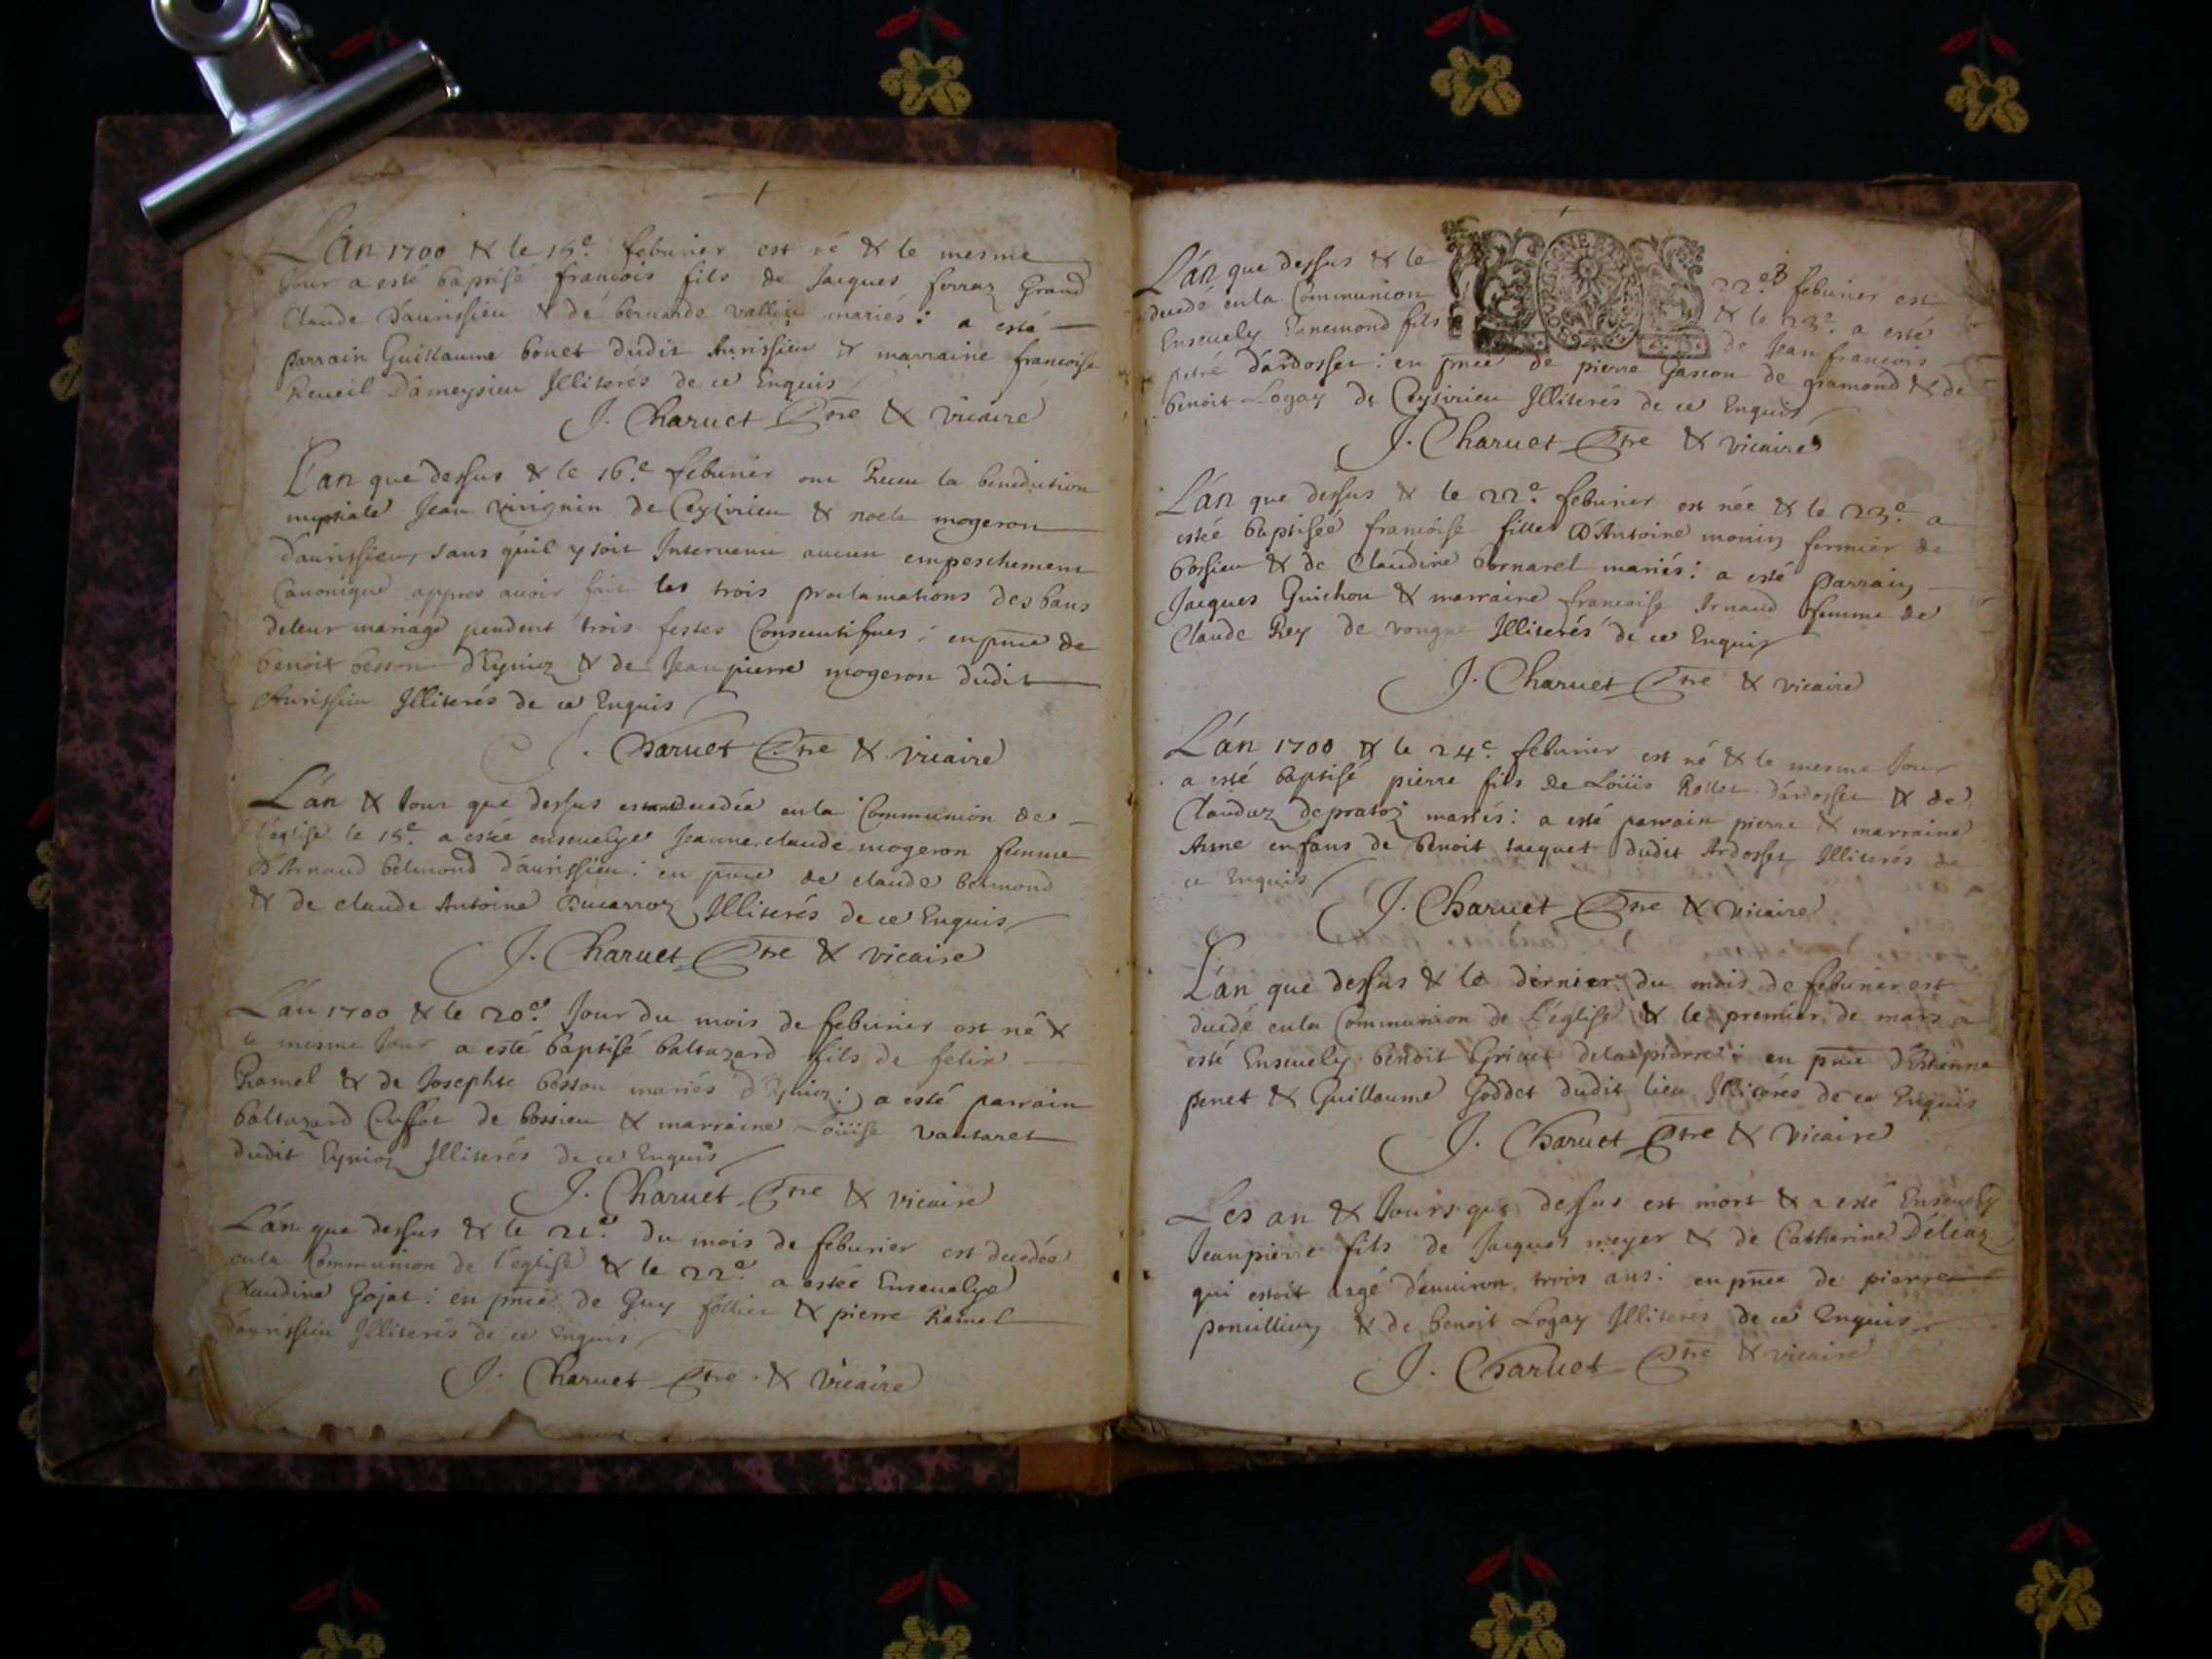 L'an 1700 & le 15e. feburier est né & le mesme
Jour a esté baptisé françois fils de Jacques ferraz Grand
Claude D'aurissieu & de bernarde mariés: a esté
parrain Guillaume bonet dudit Aurissieu & marraine francoise
Recueil D'ameysieu Illiterés de ce Enquis
J. Charuet Ptre & vicaire
L'an que dessus & le 16e. feburier ont Receu la benediction
nuptiale Jean virignin de Ceyzirieu & noele mogeron
d'aurissieu, sans qu'il y soit Intervenu aucun empeschement
Canonique appres auoir fait les trois proclamations des bans
deleur mariage pendent trois festes Consecutifues: en pnce de
benoit besson d'Eynioz & de Jean pierre mogeron dudit
Aurissieu Illiterés de ce Enquis
J. Charuet Ptre & vicaire
L'an & Jour que dessus decedée enla Communion de
l'eglise le 15e. a estée enseuelye Jeanne claude mogeron femme
D'Arnaud belmond d'aurissieu: en pnce de claude belmond
& de claude Antoine Ducarroz Illiterés de ce Enquis
J. Charuet Ptre & vicaire
L'an 1700 & le 20e. Jour du mois de feburier est né &
le mesme Jour a esté baptisé baltazard fils de felix
Ramel & de Josephte besson mariés d'Eynioz: a esté parrain
baltazard Cussot de bossieu & marraine Loüise vautaret
dudit Eynioz Illiterés de ce Enquis
J. Charuet Ptre & vicaire
L'an que dessus & le 21e. du mois de feburier est decedée
enla Communion de l'eglise & le 22e. a estée Enseuelye
Claudine Gojat: en pnce de Guy follier & pierre Ramel
d'aurissieu Illiterés de ce Enquis
J. Charuet Ptre & vicaire
L'an que dessus & le 22e. feburier est
decedé enla Communion & le 23e. a esté
Enseuely Ennemond fils de Jean francois
petré d'ardosset: en pnce de pierre Gascon de gramond & de
benoit Logay de Ceyzirieu Illiterés de ce Enquis
J. Charuet Ptre & vicaire
L'an que dessus & le 22e. feburier est née & le 23e. a
estée baptisée francoise fille D'Antoine monin fermier de
bossieu & de Claudine bornarel mariés: a esté parrain
Jacques Guichon & marraine francoise Arnaud femme de
Claude Rey de vongne Illiterés de ce Enquis
J. Charuet Ptre & vicaire
L'an 1700 & le 24e. feburier est né & le mesme Jour
a esté baptisé pierre fils de Loüis Rollet d'ardosset & de
Claudaz depratoz mariés: a esté parrain pierre & marraine
Anne enfans de benoit Jacquet dudit Ardosset Illiterés de
ce Enquis
J. Charuet Ptre & vicaire
L'an que dessus & le dernier du mois de feburier est
decedé enla Communion de l'église & le premier de mars a
esté Enseuely benoit Griuet delapierre: en pnce d'Estienne
penet & Guillaume Goddet dudit lieu Illiterés de ce Enquis
J. Charuet Ptre & vicaire
Les an & Jours que dessus est mort & a esté Enseuely
Jeanpierre fils de Jacques meyer & de Catherine Déléaz
qui estoit aagé d'enuiron trois ans: en pnce de pierre
poncillieu & de benoit Logay Illiterés de ce Enquis
J. Charuet Ptre & vicaire